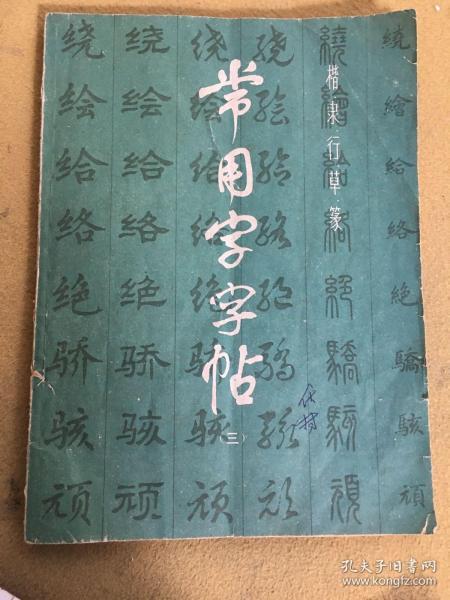 常用字字帖
（三）
楷·隶·行·草·篆
绕 绘 给 络 绝 骄 骇 顽
绕 绘 给 络 绝 骄 骇 顽
绕 绘 给 络 绝 骄 骇 顽
绕 绘 给 络 绝 骄 骇 顽
繞 繪 給 絡 絕 驕 駭 頑
繞 繪 給 絡 絕 驕 駭 頑
孔夫子旧书网
www.kongfz.com